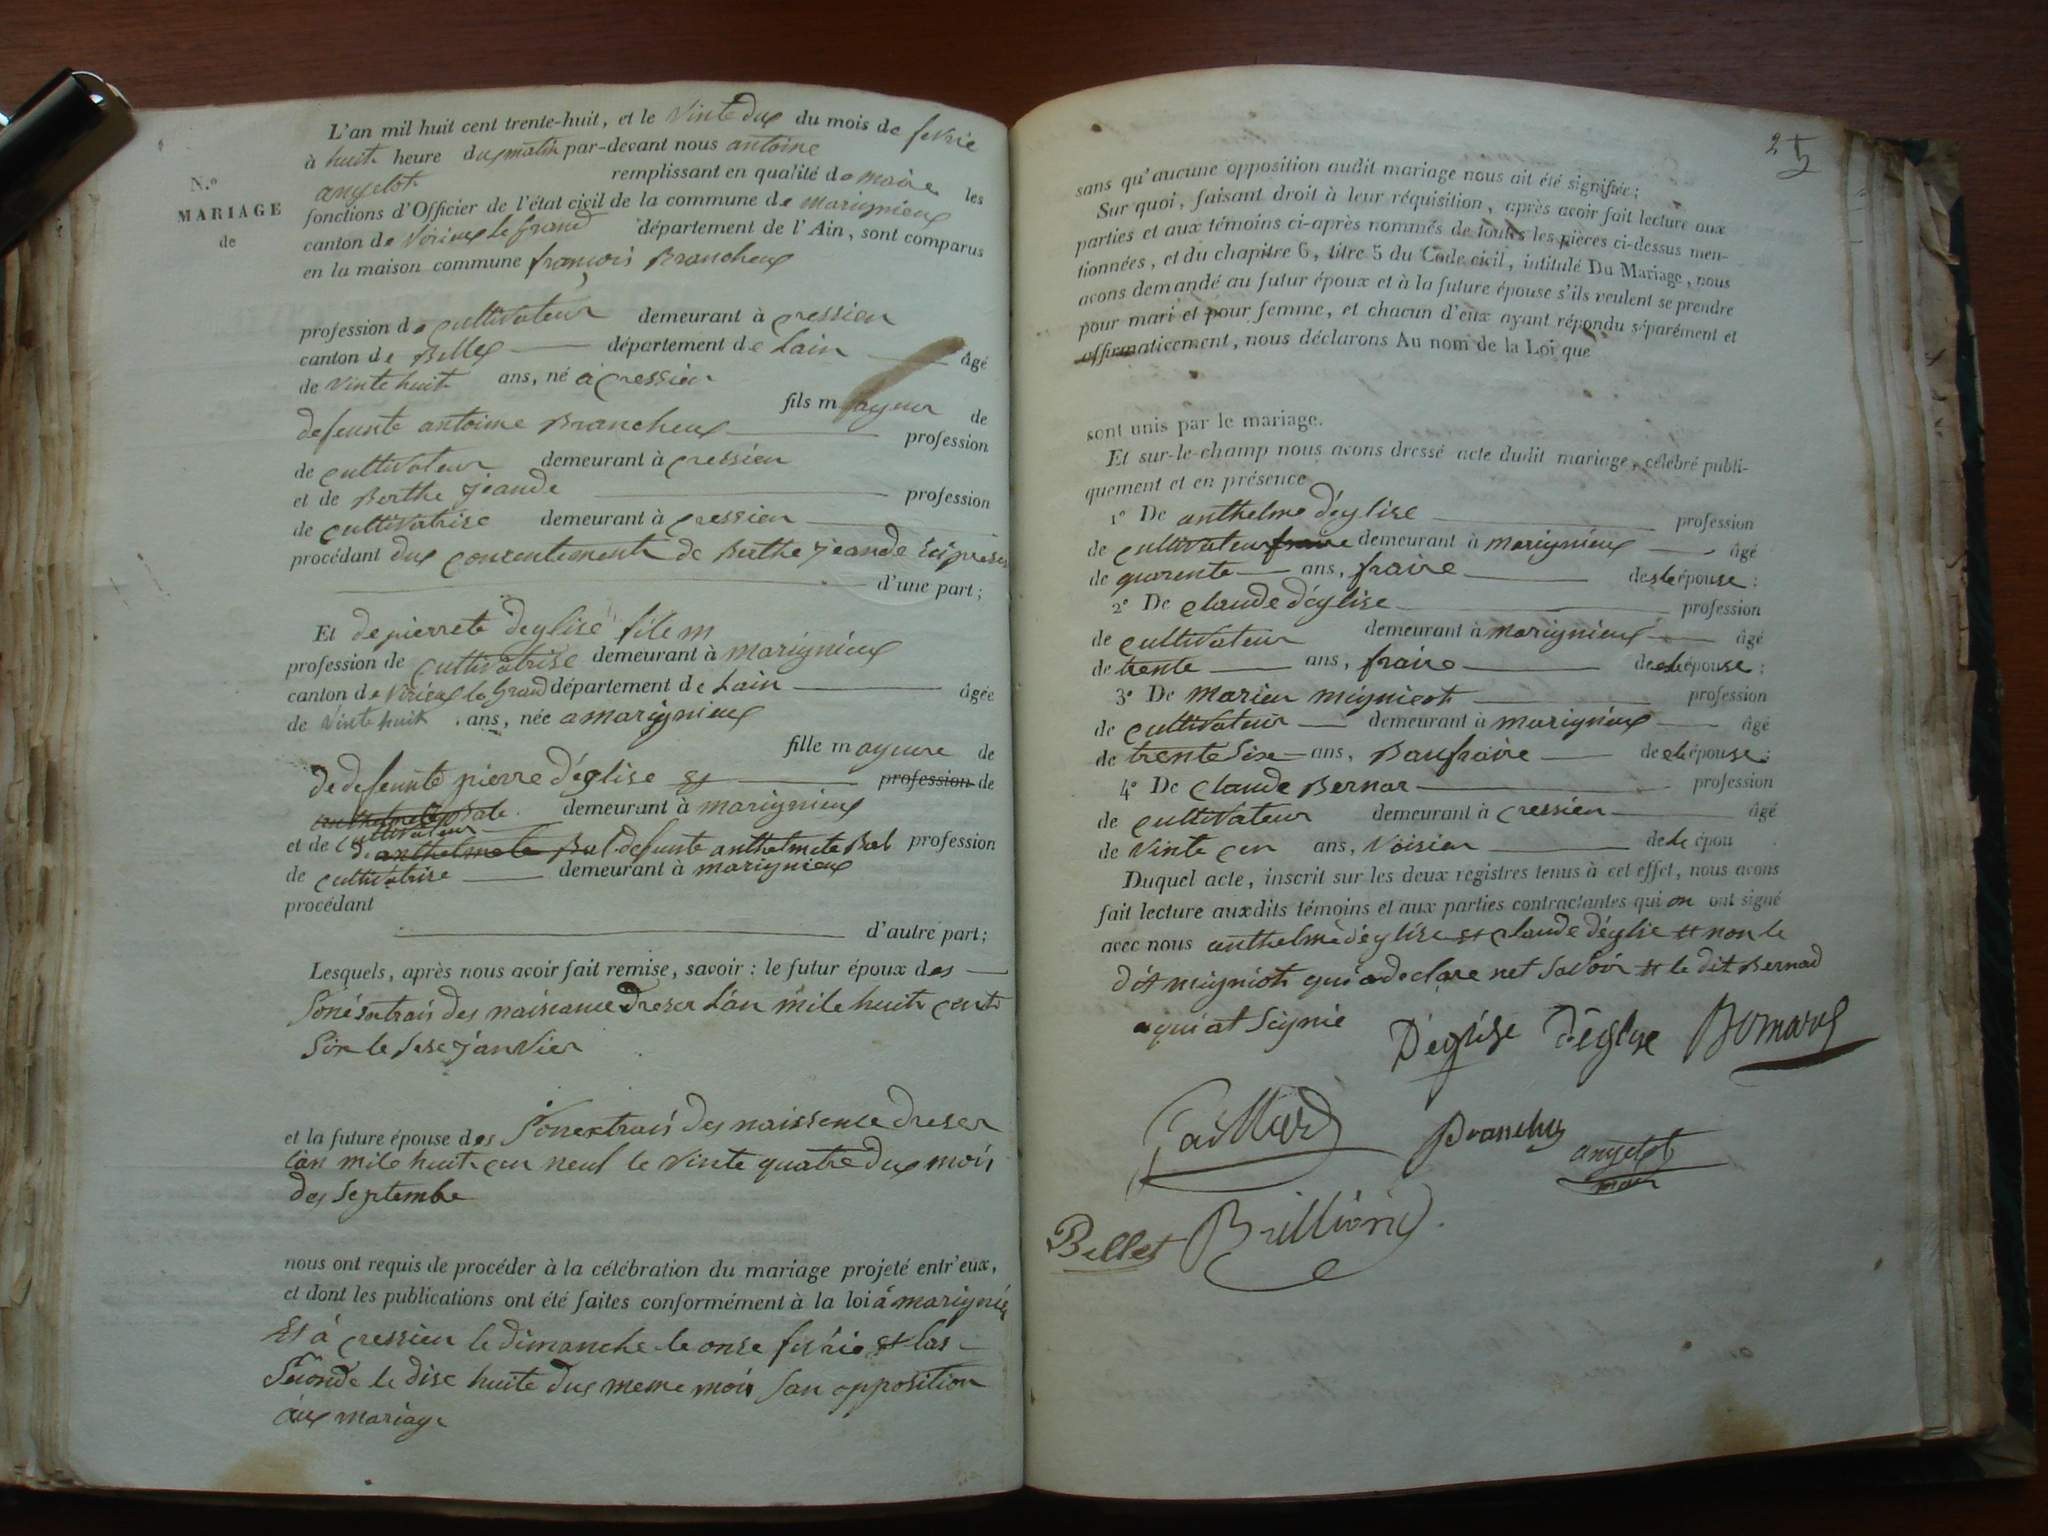 L'an mil huit cent trente-huit, et le vinte dux du mois de fevrie
à huit heure dux matin par-devant nous antoine
angelot remplissant en qualité de maire les
N.º
MARIAGE
de
fonctions d'Officier de l'état civil de la commune de marignieux
canton de Virieux le grand département de l'Ain, sont comparus
en la maison commune françois Brancheux
profession de cultivateur demeurant à cressieu
canton de Belley département de Lain âgé
de vinte huit ans, né à cressieu
fils mayeur de
defeunte antoine Brancheux profession
de cultivateur demeurant à cressieu
et de Berthe jeande profession
de cultivatrise demeurant à cressieu
procédant dux concentement de Berthe jeande
d'une part;
Et de pierrete d'eglise file m
profession de cultivatrise demeurant à marignieux
canton de Virieux le Grand département de Lain âgée
de vinte huit ans, née a marignieux
fille mayeure de
de defeunte pierre d'église et profession de
cultivateur demeurant à marignieux
et de anthelmete Bal defunte anthelmete Bal profession
de cultivatrise demeurant à marignieux
procédant
d'autre part;
Lesquels, après nous avoir fait remise, savoir : le futur époux des
Sone extrais des naissance dreser L'an mile huit cent
Dix le sese janvier
et la future épouse des Sone extrais des naissence dreser
l'an mile huit cen neuf le vinte quatre dux mois
des Septembe
nous ont requis de procéder à la célébration du mariage projeté entr'eux,
et dont les publications ont été faites conformément à la loi à marignieu
Et à cressieu le dimanche le onse fevrie et las
Seconde le dise huite dux meme mois san opposition
aux mariage
2
sans qu'aucune opposition audit mariage nous ait été signifiée;
Sur quoi, faisant droit à leur réquisition, après avoir fait lecture aux
parties et aux témoins ci-après nommés de toutes les pièces ci-dessus men-
tionnées, et du chapitre 6, titre 5 du Code civil, intitulé Du Mariage, nous
avons demandé au futur époux et à la future épouse s'ils veulent se prendre
pour mari et pour femme, et chacun d'eux ayant répondu séparément et
affirmativement, nous déclarons Au nom de la Loi que
sont unis par le mariage.
Et sur-le-champ nous avons dressé acte dudit mariage, célébré publi-
quement et en présence
1º De anthelme d'église profession
de cultivateur fraire demeurant à marignieux âgé
de quarente ans, fraire de lépouse;
2º De claude d'église profession
de cultivateur demeurant à marignieux âgé
de trente ans, fraire de lépouse;
3º De marieu mignicot profession
de cultivateur demeurant à marignieux âgé
de trente six ans, Baufraire de lépouse;
4º De claude Bernar profession
de cultivateur demeurant à cressieu âgé
de vinte cen ans, Voisien de le épou
Duquel acte, inscrit sur les deux registres tenus à cet effet, nous avons
fait lecture auxdits témoins et aux parties contractantes qui on ont signé
avec nous anthelme d'église et claude d'églie et non le
dit migniot qui a declare net savoir et le dit Bernad
a qui at Signie
D'eglise d'églyse Bernard
Gaillard Branchu angelot
mair
Bellet Brillions